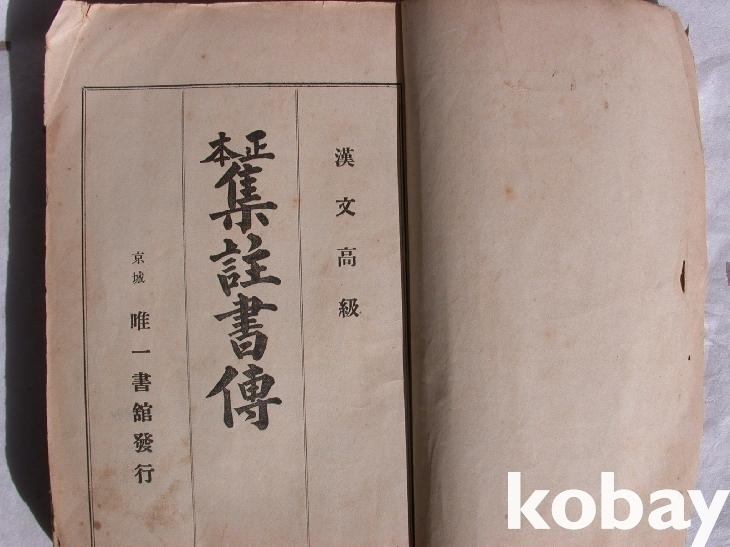 漢文高級
正本
集註書傳
京城
唯一書舘發行
kobay